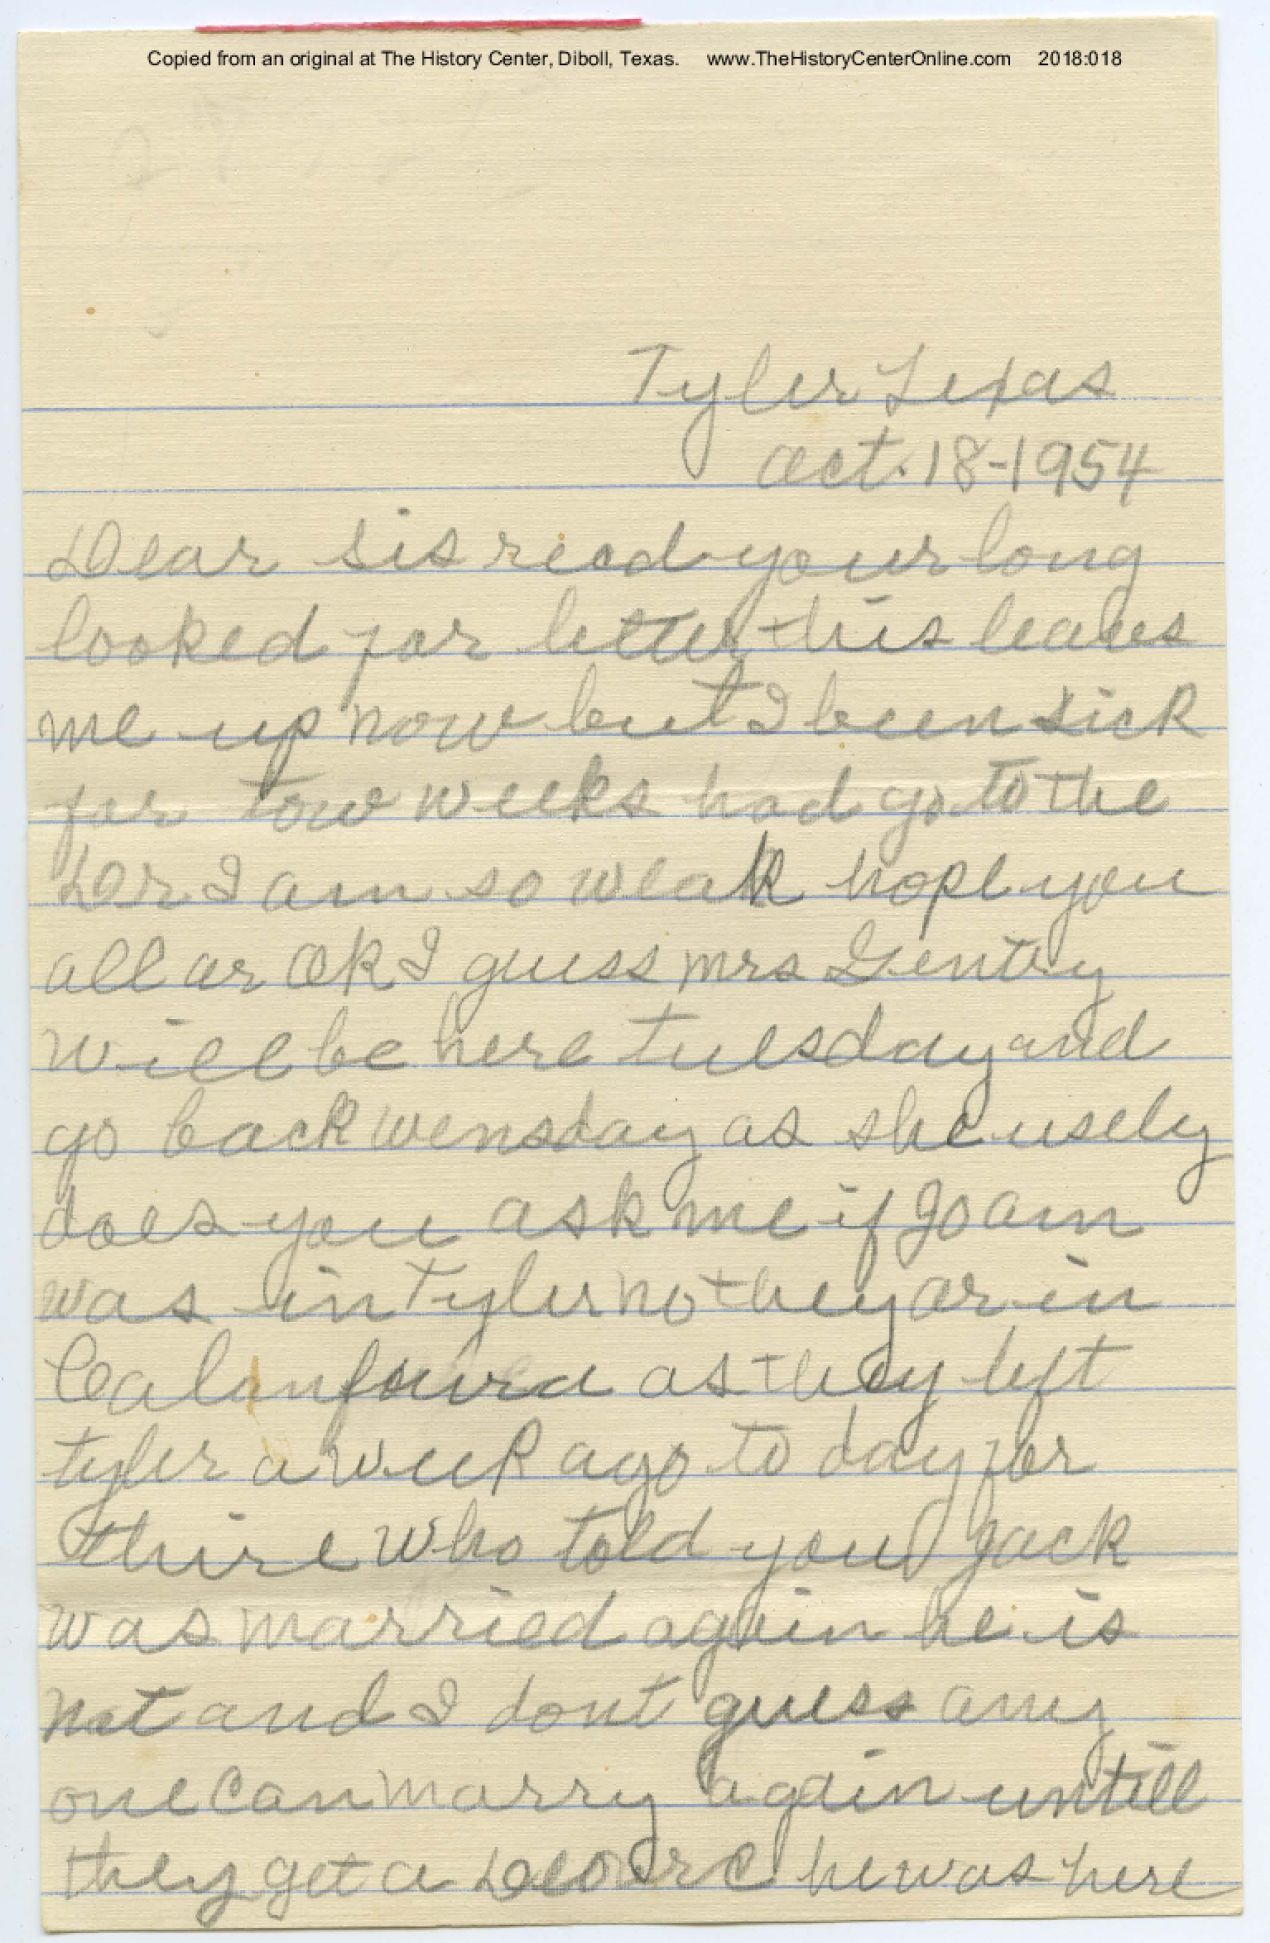 Copied from an original at The History Center, Diboll, Texas. www.TheHistoryCenterOnline.com 2018:018
Tyler Texas
Oct. 18-1954
Dear sis recd your long
looked for letter this leaves
me up now but I been sick
for tow weeks had go to the
Dor I am so weak hope you
all ar OK I guess mrs Gentry
will be here tuesday and
go back wensday as she usely
does you ask me if Joam
was in Tyler no they ar in
as they left
tyler a week ago to day for
thire who told you Jack
was married again he is
not and I dont guess any
one can marry again untill
they get a he was here